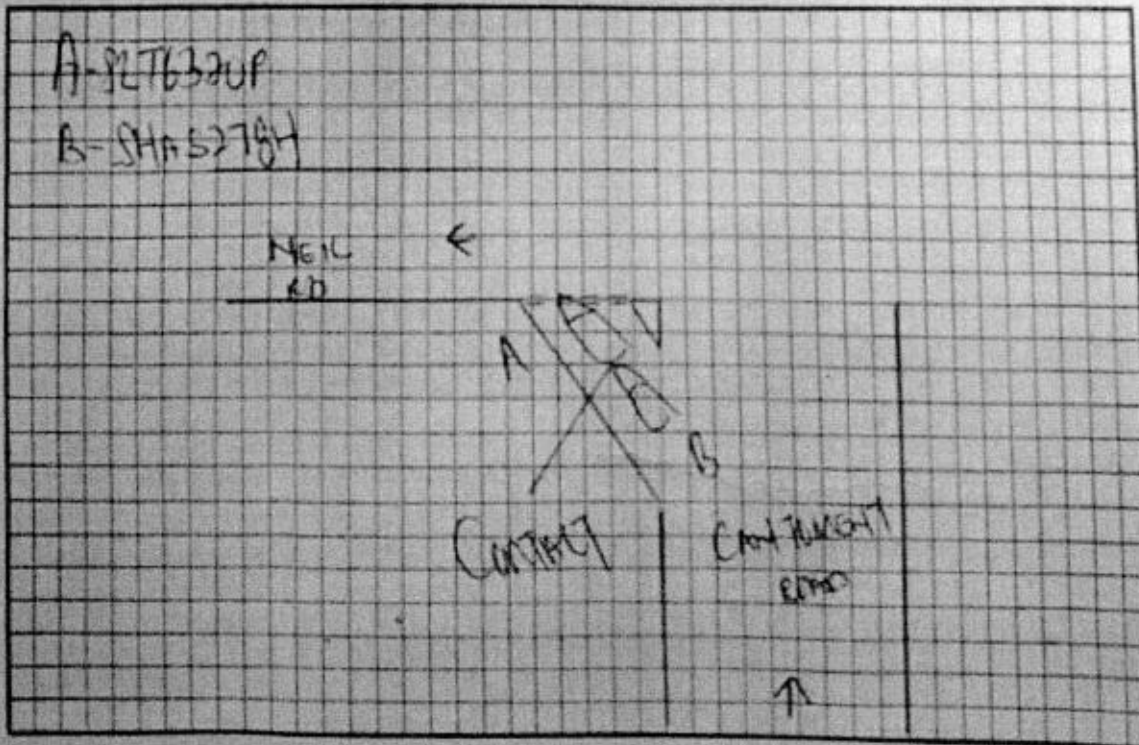 A-SLT6320P
B-SHA5278H
NEIL
RD
←
A
B
CONTACT
CANTONMENT
ROAD
↑